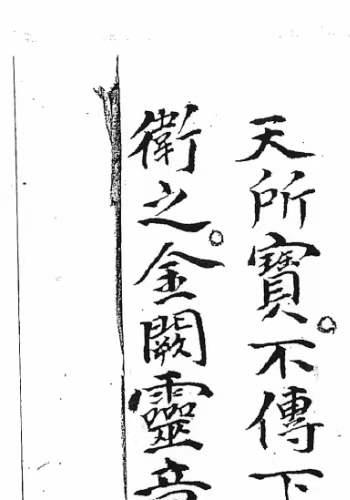 天所寶。不傳下
衛之。金闕靈音